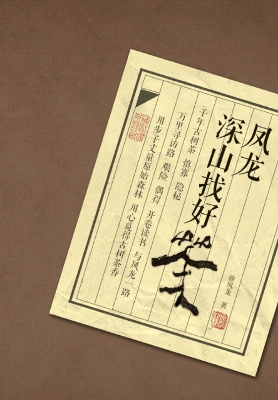 凤龙
深山找好
茶
千年古树茶 隐秘
万里寻访路 艰险 偶得 开卷读书 与凤龙一路
用步子丈量原始森林 用心觅得古树茶香
徐凤龙 著